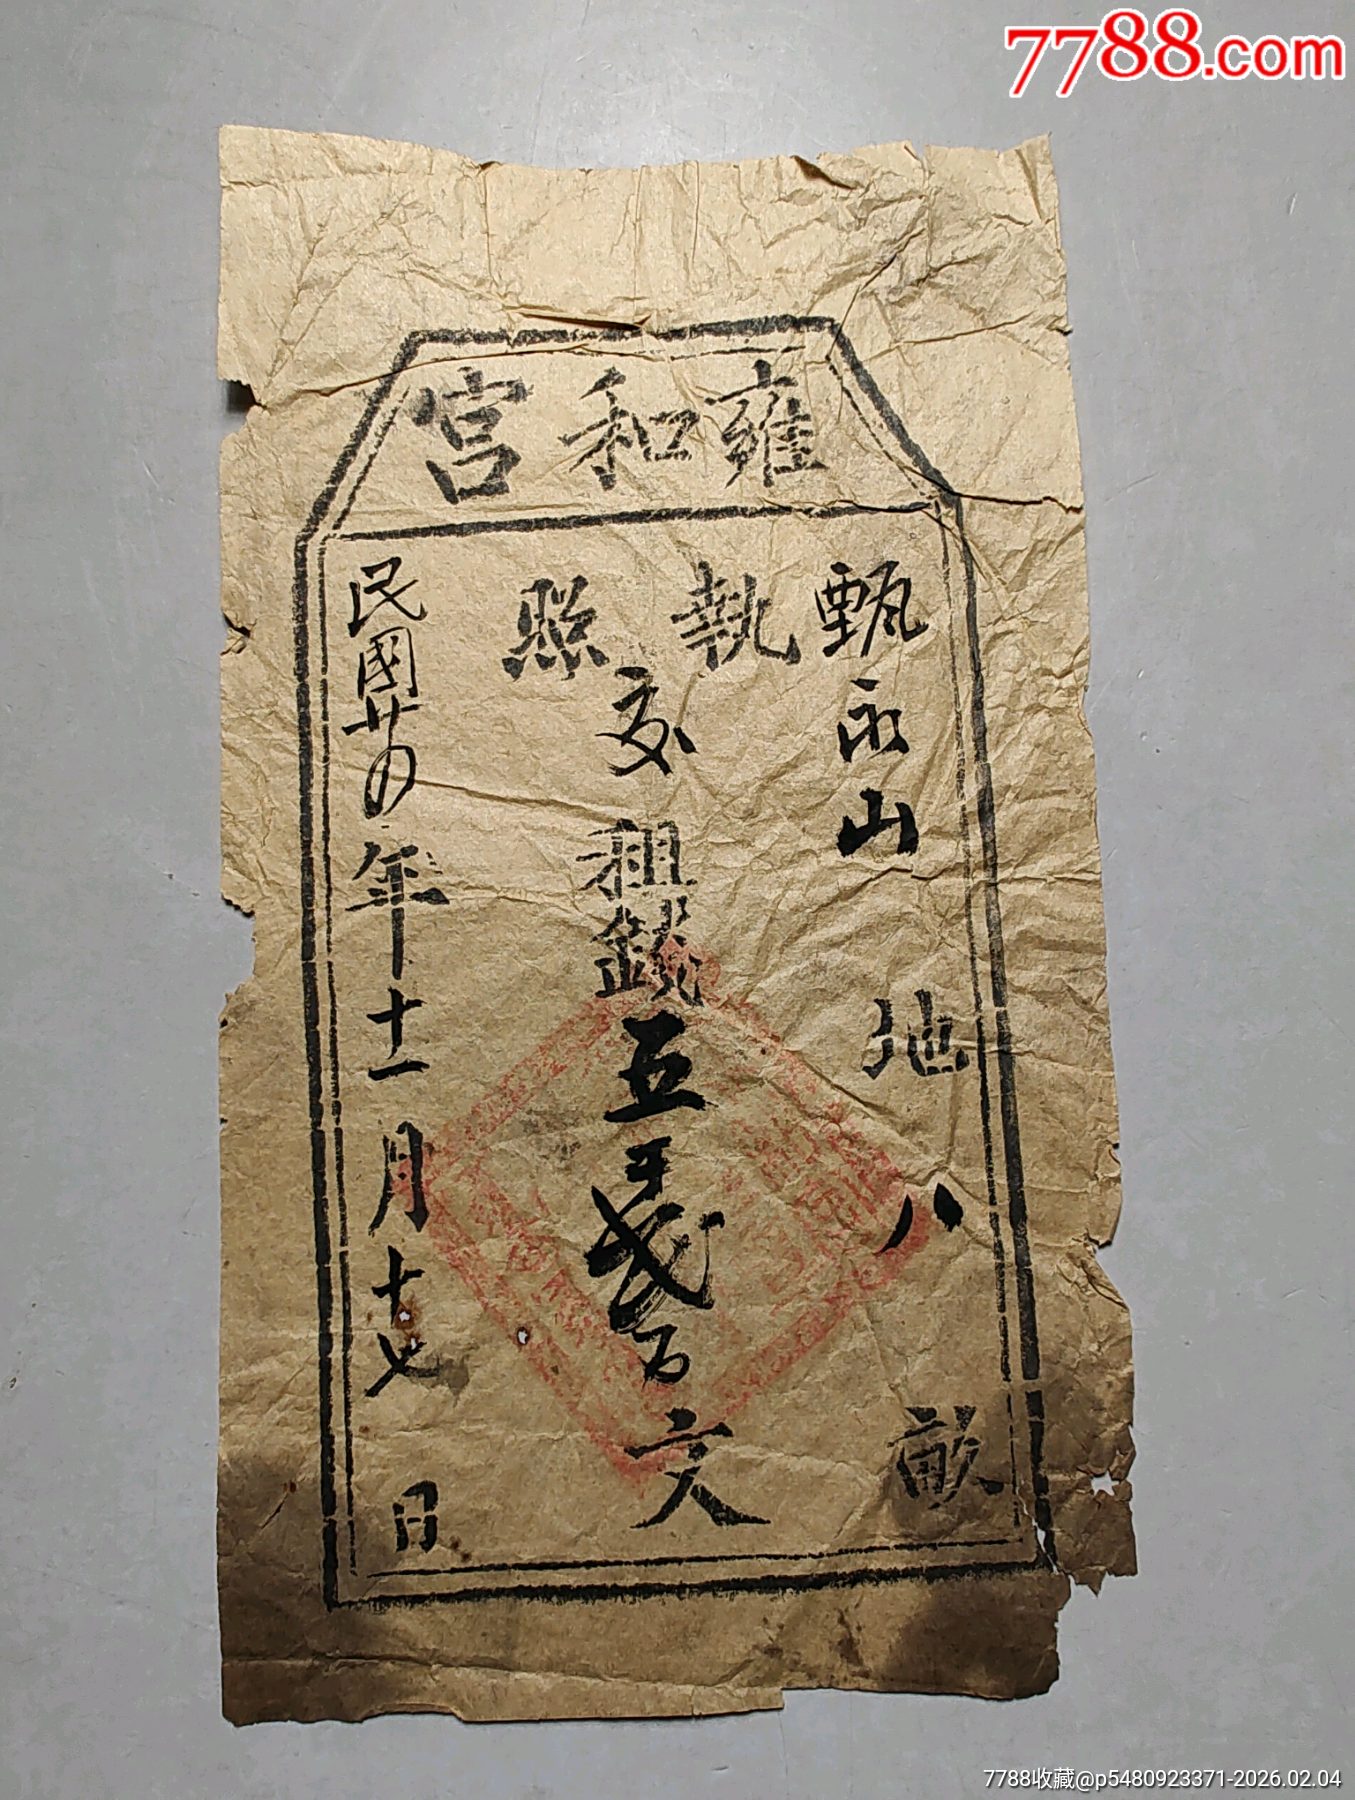 7788.com
雍和宮
執照
甄永山 地 八 畝
交租錢五千弍百文
民國廿四年十一月十七日
7788收藏@p5480923371-2026.02.04